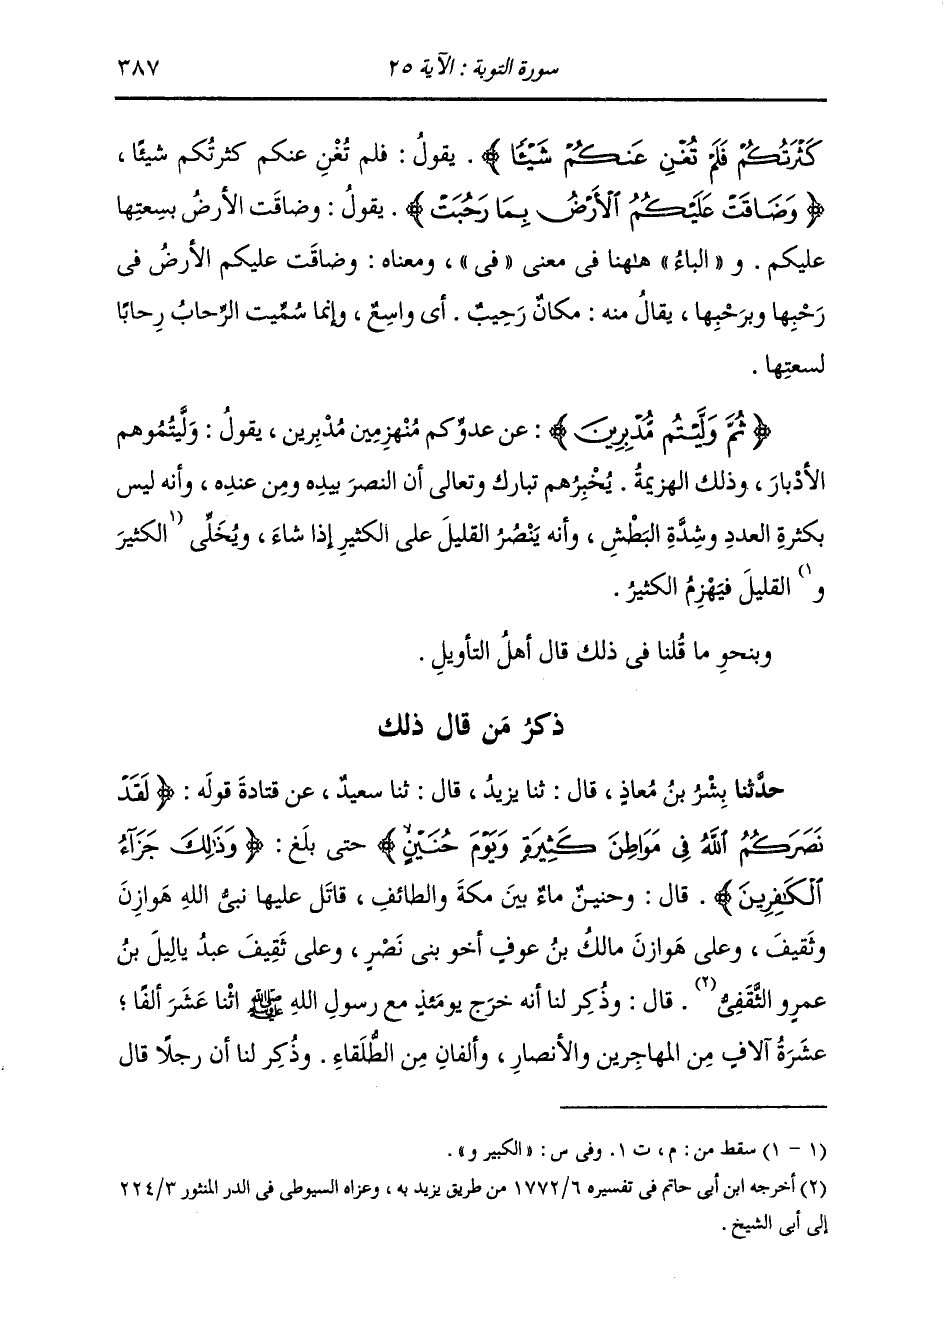 سورة التوبة : الآية ٢٥ ٣٨٧
كَثْرَتُكُمْ فَلَمْ تُغْنِ عَنكُمْ شَيْئًا ﴾ . يقولُ : فلم تُغْنِ عنكم كثرتُكم شيئًا ،
﴿ وَضَاقَتْ عَلَيْكُمُ ٱلْأَرْضُ بِمَا رَحُبَتْ ﴾ . يقولُ : وضاقَت الأرضُ بسِعتِها
عليكم . و « الباءُ » هٰهنا فى معنى « فى » ، ومعناه : وضاقَت عليكم الأرضُ فى
رَحْبِها وبرَحْبِها ، يقالُ منه : مكانٌ رَحِيبٌ . أى واسِعٌ ، وإنما سُمِّيت الرِّحابُ رِحابًا
لسعتِها .
﴿ ثُمَّ وَلَّيْتُم مُّدْبِرِينَ ﴾ : عن عدوِّكم مُنْهزِمين مُدْبِرين ، يقولُ : وَلَّيتُموهم
الأدْبارَ ، وذلك الهزيمةُ . يُخْبِرُهم تبارك وتعالى أن النصرَ بيدِه ومِن عندِه ، وأنه ليس
بكثرةِ العددِ وشِدَّةِ البَطْشِ ، وأنه يَنْصُرُ القليلَ على الكثيرِ إذا شاءَ ، ويُخَلِّى (١الكثيرَ
و١) القليلَ فيَهْزِمُ الكثيرُ .
وبنحوِ ما قُلنا فى ذلك قال أهلُ التأويلِ .
ذكرُ مَن قال ذلك
حدَّثنا بِشْرُ بنُ مُعاذٍ ، قال : ثنا يزيدُ ، قال : ثنا سعيدٌ ، عن قتادةَ قولَه : ﴿ لَقَدْ
نَصَرَكُمُ ٱللَّهُ فِى مَوَاطِنَ كَثِيرَةٍ وَيَوْمَ حُنَيْنٍ ﴾ حتى بلَغ : ﴿ وَذَٰلِكَ جَزَآءُ
ٱلْكَٰفِرِينَ ﴾ . قال : وحنينٌ ماءٌ بينَ مكةَ والطائفِ ، قاتَل عليها نبىُّ اللهِ هَوازِنَ
وثَقيفَ ، وعلى هَوازنَ مالكُ بنُ عوفٍ أخو بنى نَصْرٍ ، وعلى ثَقِيفَ عبدُ يالِيلَ بنُ
عمرٍو الثَّقَفِىُّ(٢) . قال : وذُكِر لنا أنه خرَج يومَئذٍ مع رسولِ اللهِ ﷺ اثْنا عَشَرَ ألفًا ؛
عشَرَةُ آلافٍ مِن المهاجرِين والأنصارِ ، وألفانِ مِن الطُّلَقاءِ . وذُكِر لنا أن رجلًا قال
(١ - ١) سقط من : م ، ت ١. وفى س : « الكبير و » .
(٢) أخرجه ابن أبى حاتم فى تفسيره ١٧٧٢/٦ من طريق يزيد به ، وعزاه السيوطى فى الدر المنثور ٢٢٤/٣
إلى أبى الشيخ .